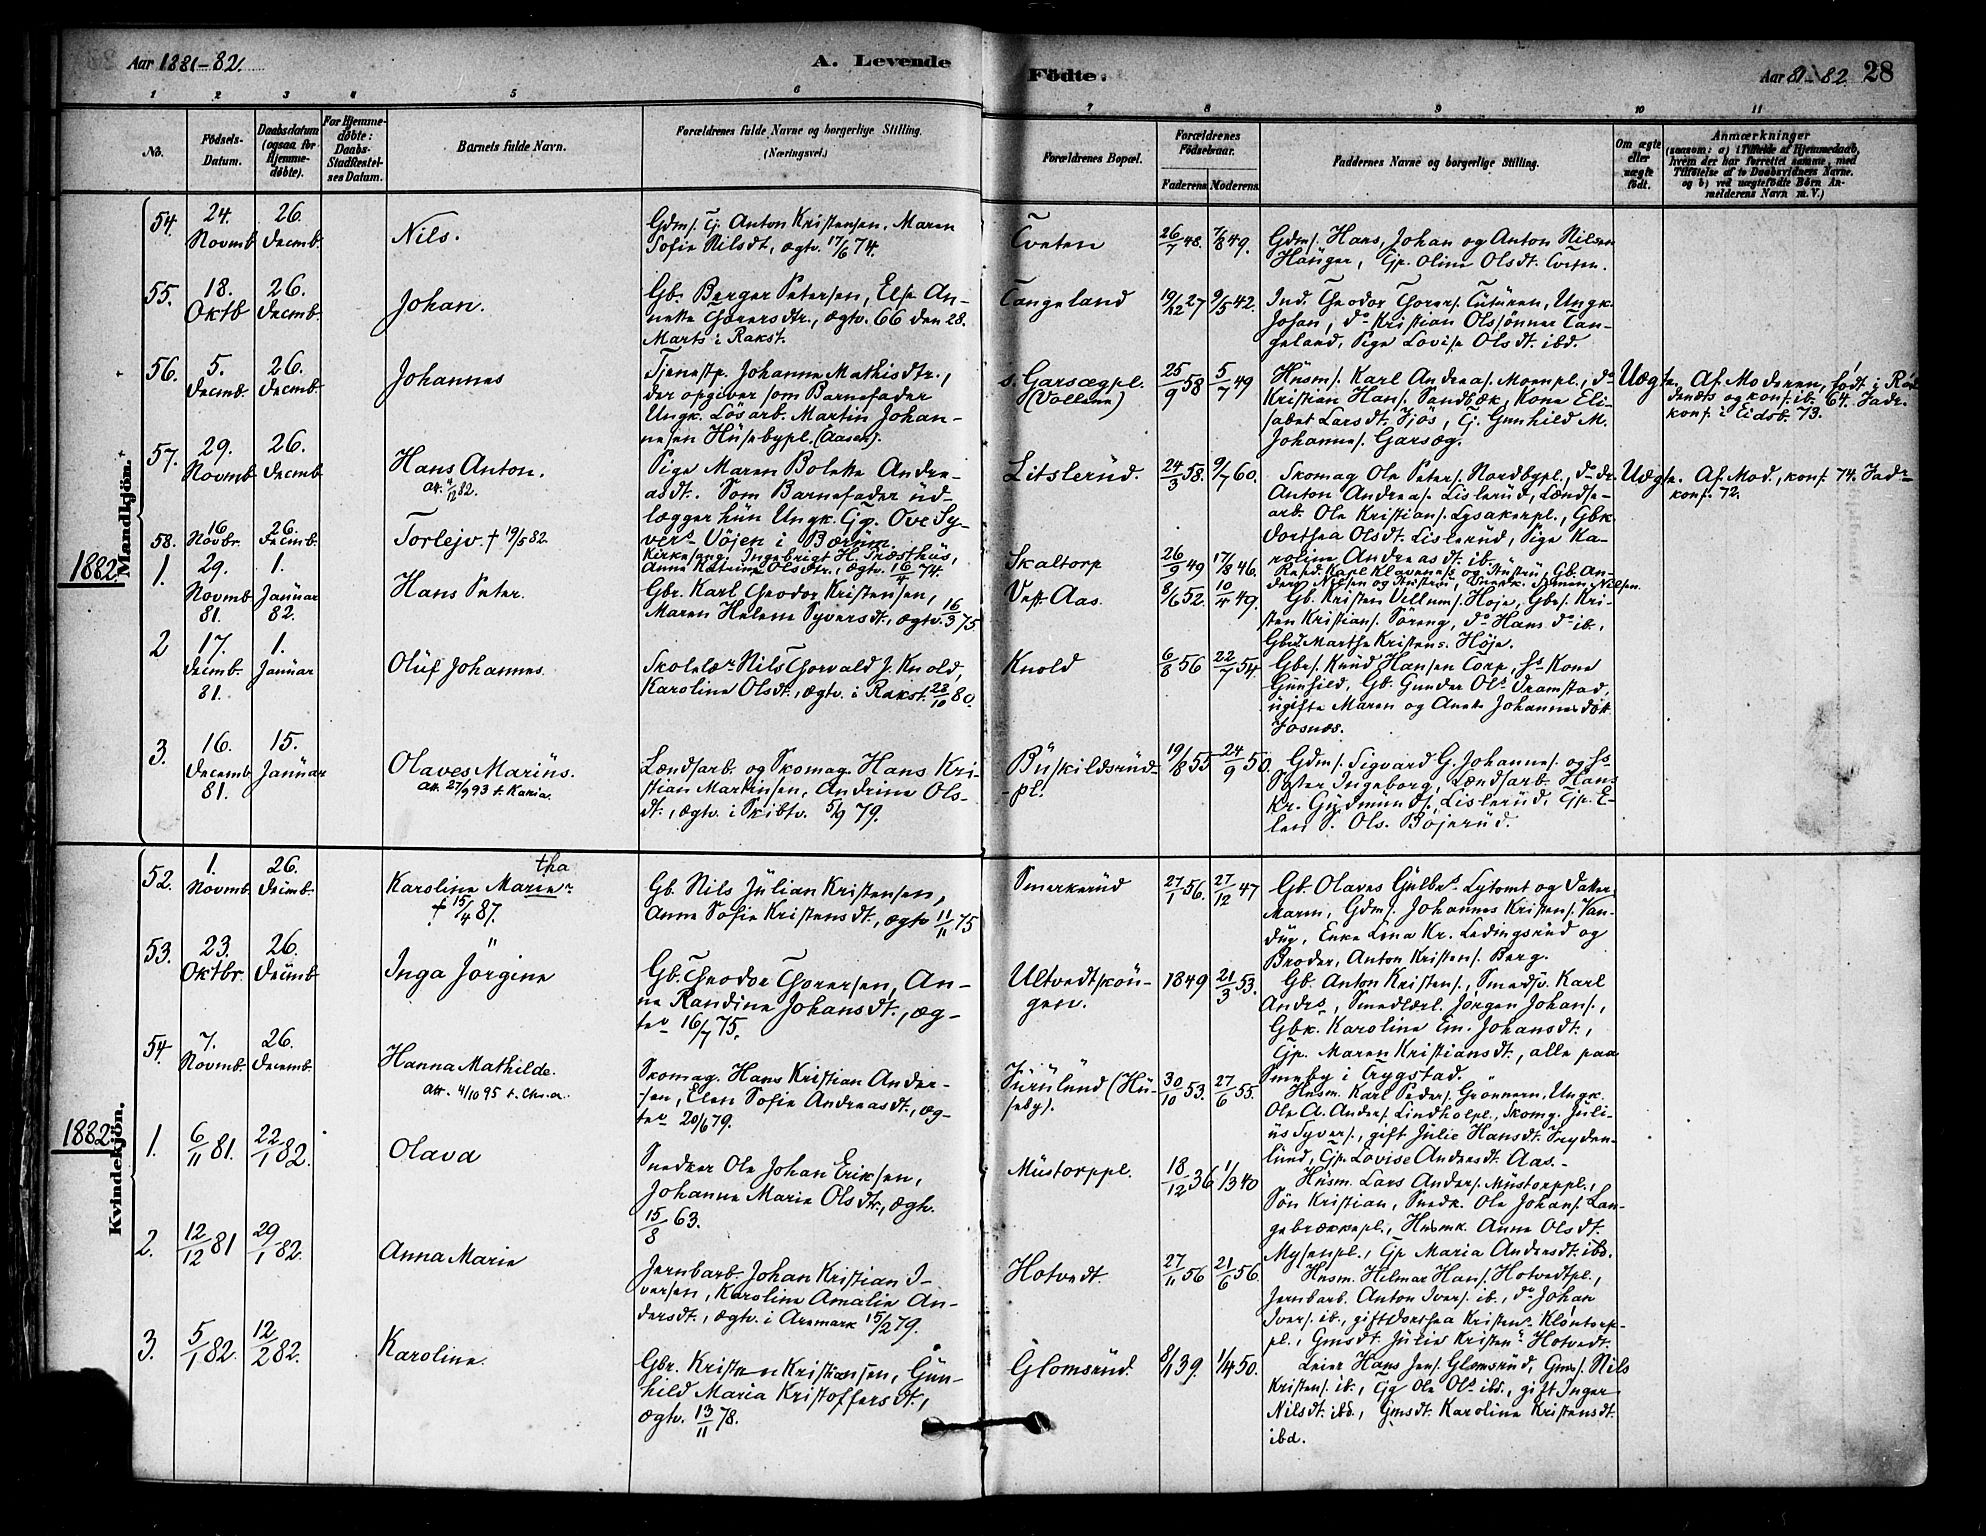 Aar 1881-82.
A. Levende
Födte.
Aar 81-82
28
1 2 3 4 5 6 7 8 9 10 11
No.
Födsels-Datum.
Daabsdatum (ogsaa for Hjemme-døbte).
For Hjemme-døbte: Daabs-Stadfæstel-ses Datum.
Barnets fulde Navn.
Forældrenes fulde Navne og borgerlige Stilling.
(Næringsvei.)
Forældrenes Bopæl.
Forældrenes Födselsaar.
Faderens Moderens
Faddernes Navne og borgerlige Stilling.
Om ægte eller uægte født.
Anmærkninger
(saasom: a) i Tilfælde af Hjemmedaab,
hvem der har forrettet samme, med
Tilføielse af to Daabsvidners Navne.
og b) ved uægtefödte Börn An-
melderens Navn m. V.)
Mandkjön.
54. 24. Novmb. 26. Decmb. Nils.
Gdms. Tj. Anton Kristensen, Maren
Sofie Nilsdt., ægtv. 17/6 74.
Tveten 26/7 48. 7/8 49.
Gdms. Hans, Johan og Anton Nilsen
Hänger, Gp. Oline Olsdt. Tveten.
55. 18. Oktb 26. Decmb. Johan.
Gb. Berger Petersen, Else An-
nette Thorersdtr., ægtv. 66 den 28.
Marts i Rakst.
Tangeland 19/12 27 9/5 42.
Ind. Theodor Thorers. Tuturen, Ungk.
Johan, do Kristian Olssønner Tan-
geland, Pige Lovise Olsdt. ibd.
56. 5. Decmb. 26. Decmb. Johannes
Tjenestp. Johanne Mathisdtr.,
der opgiver som Barnefader
Ungk. Lösarb. Martin Johan-
nesen Husebypl. (Aasen).
s. Garsægpl. (Vollene) 25/9 58 5/7 49
Husm. Karl Andreas. Moenpl., do
Kristian Hans. Sandbæk, Kone Eli-
sabet Larsdt. Sjös, Tj. Gunhild M.
Johannes. Garsæg.
Uægte. Af Moderen, født i Röd-
denæs og konf. ib. 64. Fadr.
konf. i Eidsb. 73.
57. 29. Novmb 26. Decmb Hans Anton.
Att. 4/12 82.
Pige Maren Bolette Andre-
asdt. Som Barnefader ud-
lægger hun Ungk. Gp. Ove Sy-
vers. Vöjen i Bærum.
Litslerud. 24/3 58. 9/7 60.
Skomag Ole Peters. Nordbypl., do dr.
Anton Andreas. Lislerud, Lændse-
arb. Ole Kristians. Lysakerpl., Gbk.
Dorthea Olsdt. Lislerud, Pige Ka-
roline Andreasdt. ib.
Uægte. Af Mod., konf. 74. Fadr
konf. 72.
58. 16. Novbr. 26. Decmb. Torlejv. + 19/5 82
Kirkesang. Ingebrigt H. Præsthus,
Anne Katrine Olsdtr., ægtv. 16/4 74.
Skaltorp 26/9 49 17/8 46.
Resd. Karl Klavenæs og Hustru, Gb. An-
ders Nilsen og Hustru, Nilsen.
1882
1. 29. Novmb. 81. 1. Januar 82. Hans Peter.
Gbr. Karl Theodor Kristensen,
Maren Helene Syversdt., ægtv. 16/3 75.
Vest. Aas. 8/6 52. 10/4 49.
Gb. Kristen Villums. Höje, Gbes. Kri-
sten Kristians. Söreng, do Hans do ib.
Gbd. Marthe Kristens. Höje.
2 17. Decmb. 81. 1. Januar Oluf Johannes.
Skolelær. Nils Thorvald J. Knold,
Karoline Olsdt., ægtv. i Rakst. 28/10 80.
Knold 6/8 56 22/7 54.
Gbes. Knud Hansen Torp, hs. Kone
Gunhild, Gb. Gunder Ols. Dramstad,
ugifte Maren og Anette Johannesdött.
Josnæs.
3. 16. Decemb. 81. 15. Januar Olaves Marius.
Att. 27/9 93 t. Kania.
Lændsarb. og Skomag. Hans Kri-
stian Martinsen, Andrine Ols-
dt., ægtv. i Skibtv. 5/9 79.
Buskildsrud-
-pl. 19/8 55 24/9 50.
Gdms. Sigvard G. Johannes. og hs.
Søster Ingeborg, Lændsarb. Hans
Kr. Gudmunds. Lislerud, Gp. E-
len S. Ols. Böjerud.
Kvindekjön.
52. 1. Novmb. 26. Decmb. Karoline Marie
tha
+ 15/4 87.
Gb. Nils Julian Kristensen,
Anne Sofie Kristensdt., ægtv 11/11 75
Smerkerud 27/1 56. 27/12 47
Gb. Olaves Gulbrs. Lytomt og Datter
Maren, Gdms. Johannes Kristens. Van-
dug, Enke Lina Kr. Ledingsrud og
Broder, Anton Kristens. Berg.
53. 23. Oktbr. 26. Decmb Inga Jörgine
Gb. Theodor Thorersen, An-
ne Randine Johansdt., æg-
tev 16/7 75.
Ultvedtskou-
gen. 1849 21/3 53.
Gb. Anton Kristens., Smedsv. Karl
Andrs., Smedlærl. Jörgen Johans.,
Gbk. Karoline Em. Johansdt.,
Gp. Maren Kristiansdt., alle paa
Smeby i Trygstad.
54. 7. Novmb. 26. Decemb. Hanna Mathilde.
Att. 4/10 95 t. Chr.a.
Skomag. Hans Kristian Ander-
sen, Elen Sofie Andreasdt., æg-
tev 20/6 79.
Furulund (Hu-
seby). 30/10 53. 27/6 55.
Husm. Karl Peders. Grönnern, Ungk.
Ole A. Anders. Lindholpl., Skomg. Juli-
us Syvers., gift Julie Hansdt. Fryden-
lund, Gp. Lovise Andersdt. Aas.
1882
1. 6/11 81. 22/1 82. Olava
Snedker Ole Johan Eriksen,
Johanne Marie Olsdtr., ægtv.
15/8 63.
Mustorppl. 18/12 36 1/3 40
Husm. Lars Anders. Mustorppl.,
Sön Kristian, Snedk. Ole Johans. Lan-
gebrækkepl., Husmk. Anne Olsdt.
Mysenpl., Gp Maria Andersdt. ibd.
2. 12/12 81 29/1 82. Anna Marie
Jernbarb. Johan Kristian I-
versen, Karoline Amalie An-
dersdt., ægtv. i Aremark 15/2 79.
Hotvedt. 27/11 56 21/6 56.
Husm. Hilmar Hans. Hotvedtpl.,
Jernbarb. Anton Ivers. ib., do Johan
Ivers. ib., gift Dorthea Kristens. Klöntorp-
pl., Gmsdt. Julie Kristens. Hotvedt.
3. 5/1 82. 12/2 82. Karoline.
Gbr. Kristen Kristiansen, Gun-
hild Maria Kristoffersdt.,
ægtv. 13/11 78.
Glomsrud. 8/1 39. 1/4 50.
Leier Hans Jens. Glomsrud, Gms. Nils
Kristens. ib., Gg Ole Ols. ibd., gift Inger
Nilsdt. ibd., Gmsdt. Karoline Kristensdt.
ibd.